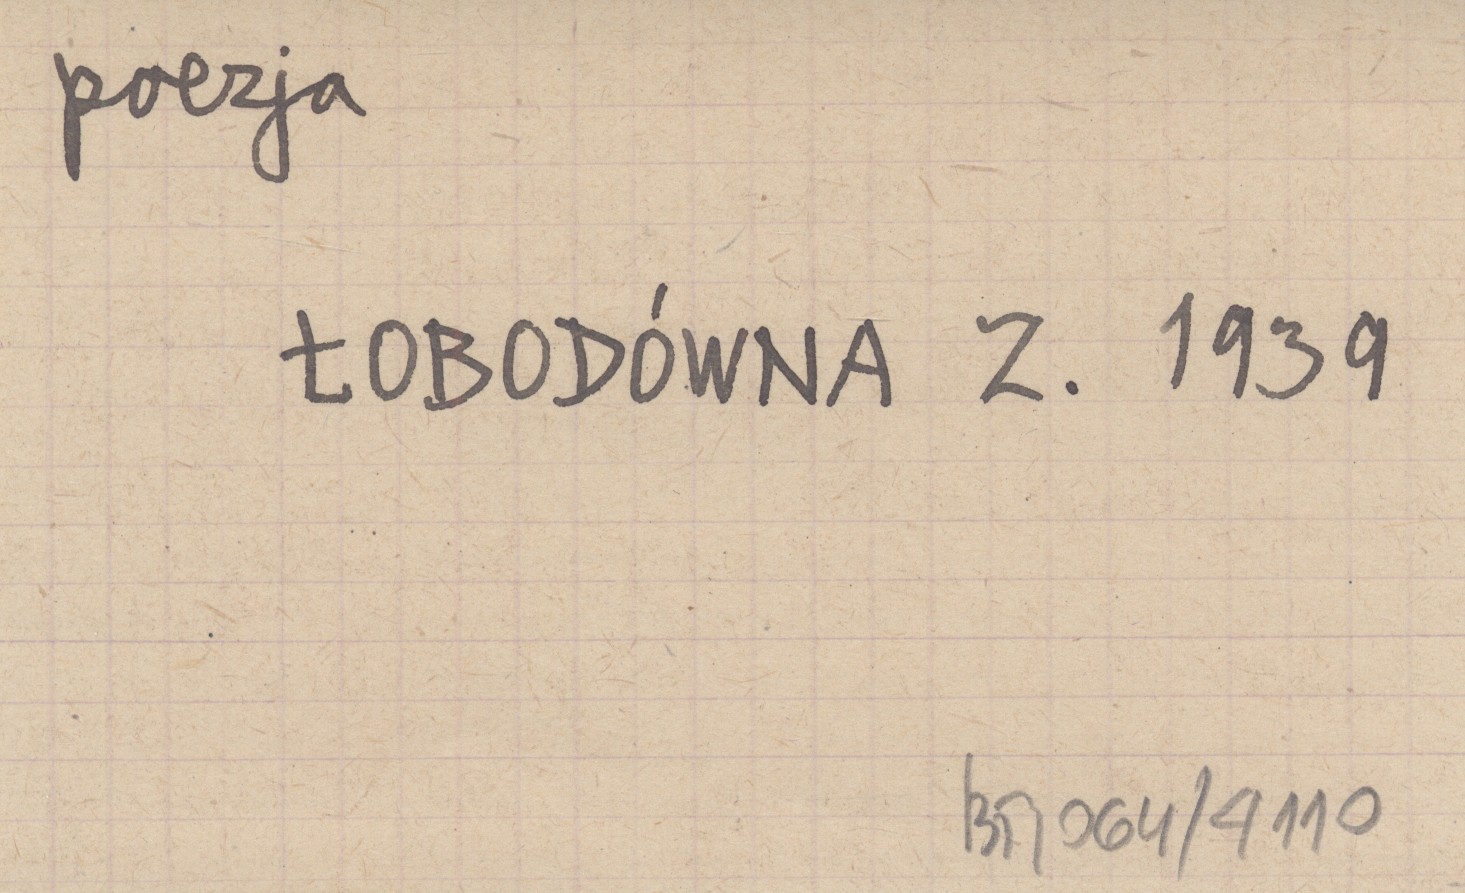 poezja
ŁOBODÓWNA Z. 1939
064/4110